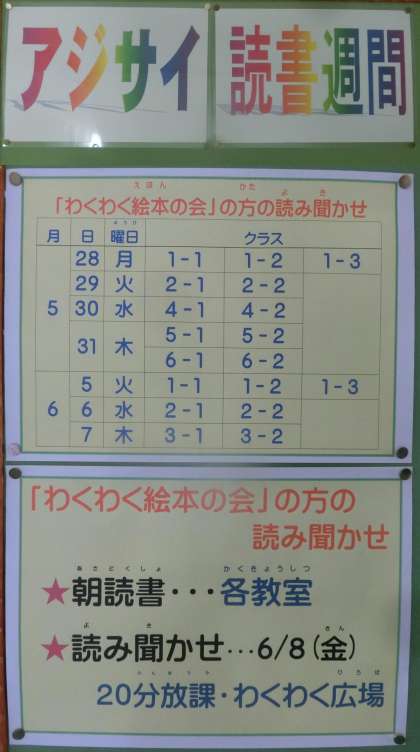 アジサイ 読書週間
「わくわく絵本の会」の方の読み聞かせ
月 日 曜日 クラス
5 28 月 1-1 1-2 1-3
29 火 2-1 2-2
30 水 4-1 4-2
31 木 5-1 5-2
6-1 6-2
6 5 火 1-1 1-2 1-3
6 水 2-1 2-2
7 木 3-1 3-2
「わくわく絵本の会」の方の
読み聞かせ
★朝読書・・・各教室
★読み聞かせ…6/8(金)
20分放課・わくわく広場